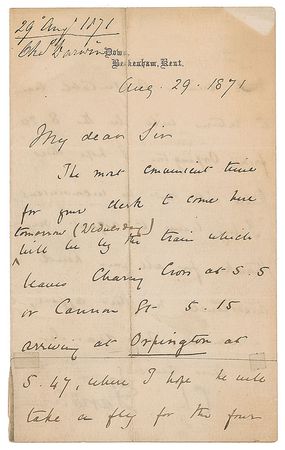 29 Augt 1871
Chs Darwin
Down,
Beckenham, Kent.
Aug. 29. 1871
My dear Sir
The most convenient time
for your clerk to come here
tomorrow (Wednesday)
will be by the train which
leaves Charing Cross at 5.5
or Cannon St 5.15
arriving at Orpington at
5.47, where I hope he will
take a fly for the four